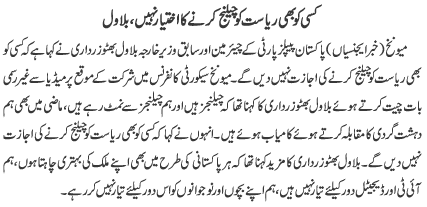 کسی کو بھی ریاست کو چیلنج کرنے کا اختیار نہیں، بلاول
میونخ (خبر ایجنسیاں) پاکستان پیپلز پارٹی کے چیئرمین اور سابق وزیر خارجہ بلاول بھٹو زرداری نے کہا ہے کہ کسی کو
بھی ریاست کو چیلنج کرنے کی اجازت نہیں دیں گے۔ میونخ سیکورٹی کانفرنس میں شرکت کے موقع پر میڈیا سے غیر رسمی
بات چیت کرتے ہوئے بلاول بھٹو زرداری کا کہنا تھا کہ چیلنجز ہیں اور ہم چیلنجز سے نمٹ رہے ہیں، ماضی میں بھی ہم
دہشت گردی کا مقابلہ کرتے ہوئے کامیاب ہوئے ہیں۔ انہوں نے کہا کہ کسی کو بھی ریاست کو چیلنج کرنے کی اجازت
نہیں دیں گے۔ بلاول بھٹو زرداری کا مزید کہنا تھا کہ ہر پاکستانی کی طرح میں بھی اپنے ملک کی بہتری چاہتا ہوں، ہم
آئی ٹی اور ڈیجیٹل دور کیلئے تیار نہیں ہیں، ہم اپنے بچوں اور نوجوانوں کو اس دور کیلئے تیار نہیں کر رہے۔